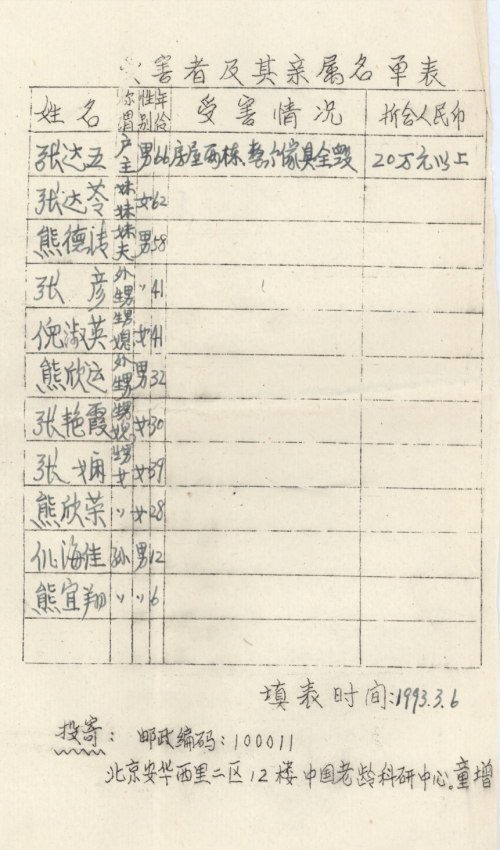 害者及其亲属名单表
姓名 称谓 性别 年龄 受害情况 折合人民币
张达五 户主 男 66 房屋两栋、整个家具全毁 20万元以上
张达苓 妹妹 女 62
熊德清 妹夫 男 58
张彦 外甥男 〃 41
倪淑英 甥媳 女 41
熊欣运 外甥男 男 32
张艳霞 甥媳 女 30
张娴 甥女 女 39
熊欣荣 〃 女 28
仉海佳 孙 男 12
熊宜翔 〃 〃 6
填表时间:1993.3.6
投寄:邮政编码:100011
北京安华西里二区12楼中国老龄科研中心。童增